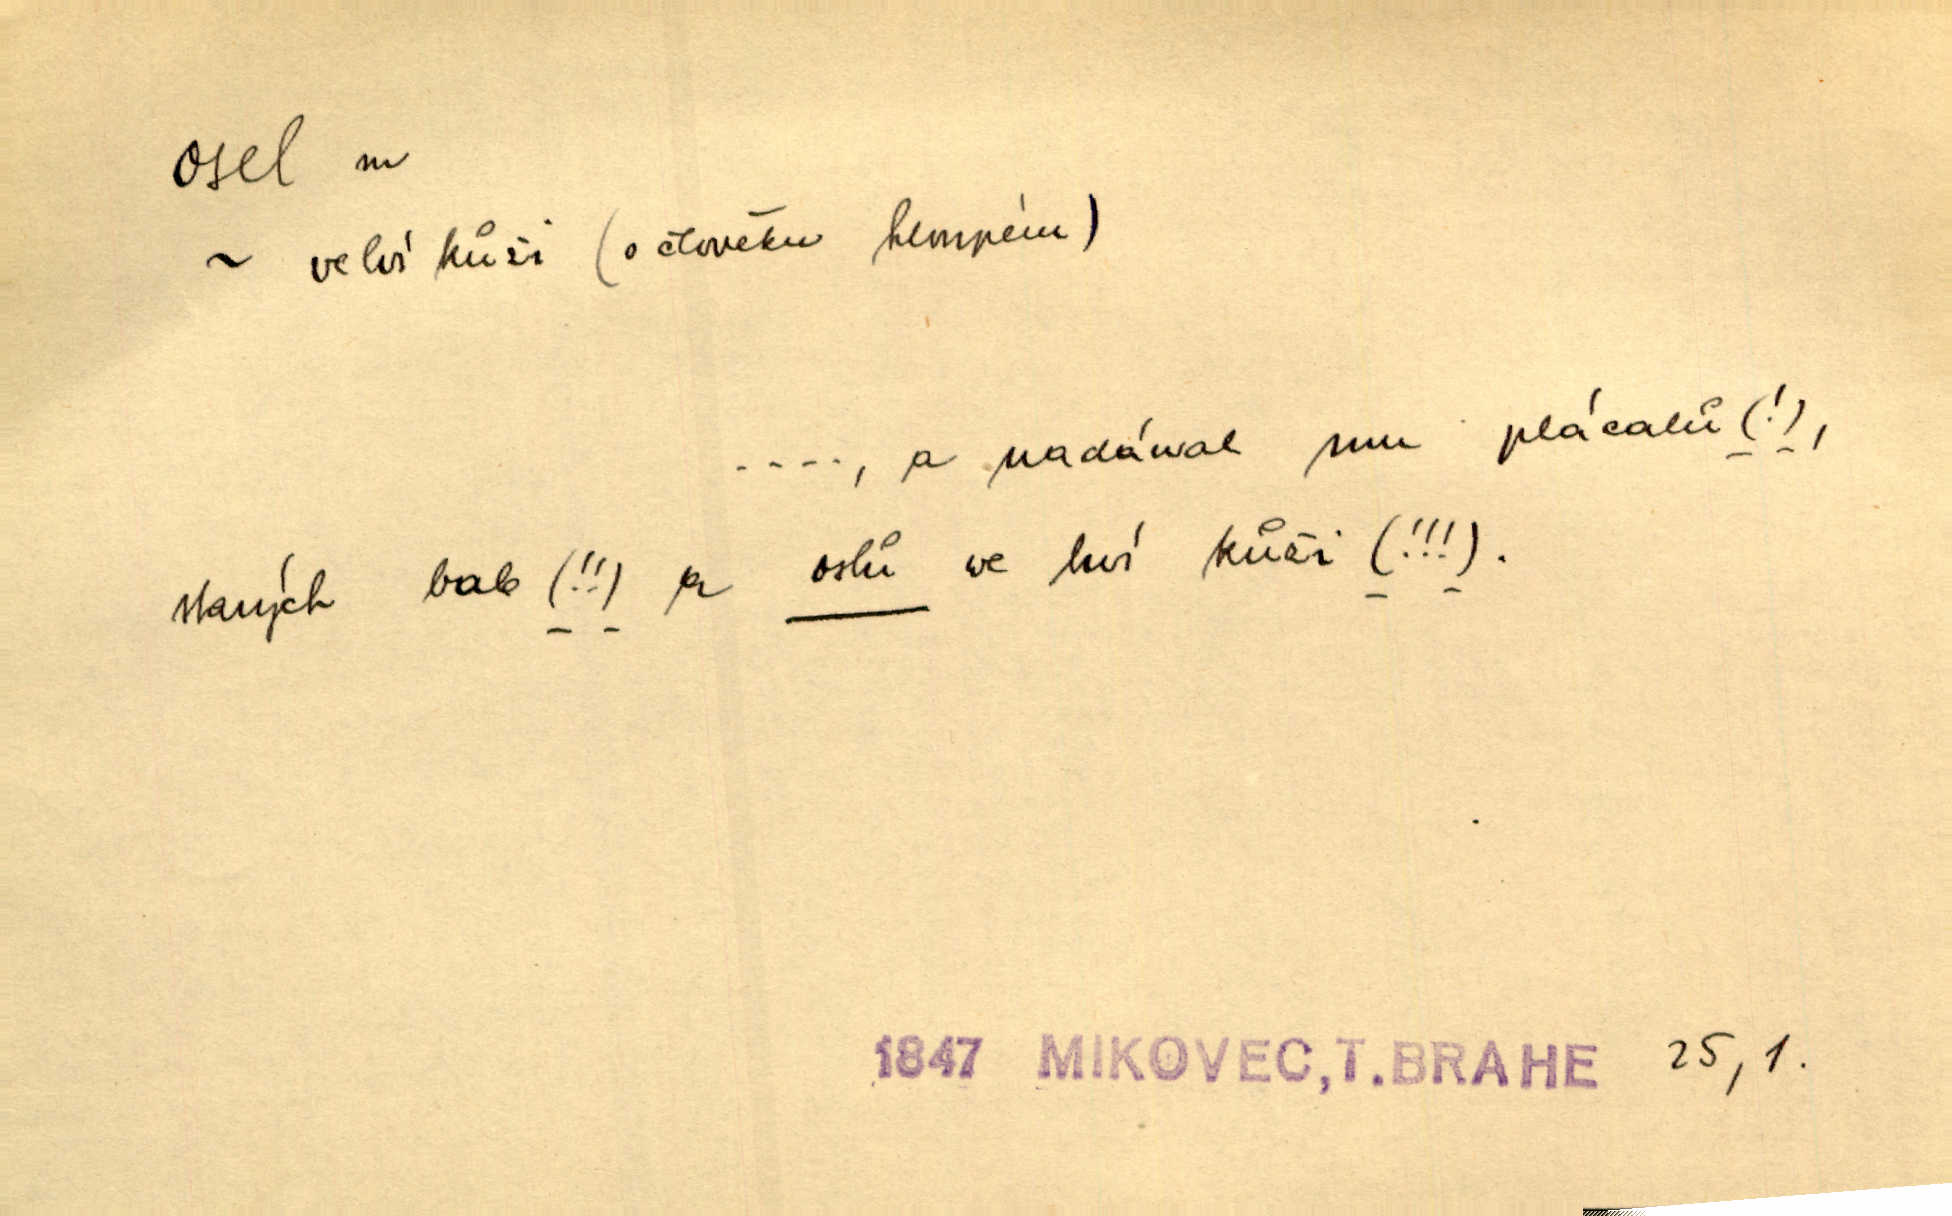 osel m
~ ve lví kůži (o člověku hloupém)
----, a nadáwal mu plácalů (!),
starých bab (!!) a oslů we lwí kůži (!!!).
1847 MIKOVEC,T.BRAHE 25, 1.